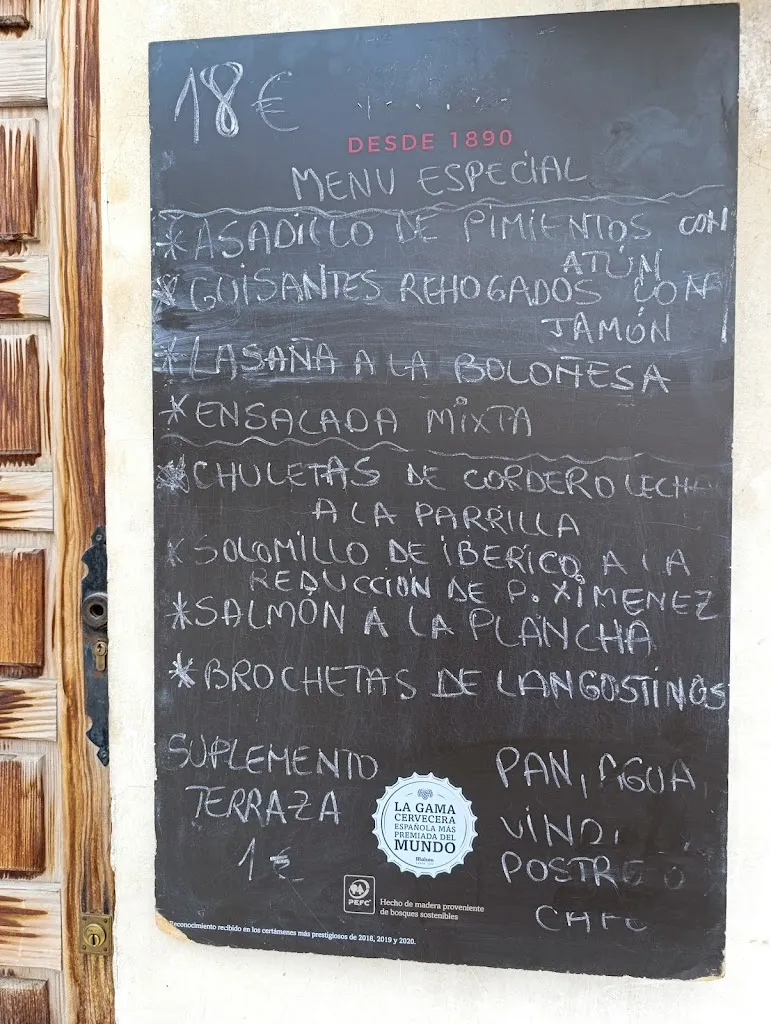 18 €
DESDE 1890
MENU ESPECIAL
* ASADILLO DE PIMIENTOS CON
ATÚN
* GUISANTES REHOGADOS CON
JAMÓN
* LASAÑA A LA BOLOÑESA
* ENSALADA MIXTA
* CHULETAS DE CORDERO LECHA
A LA PARRILLA
* SOLOMILLO DE IBERICO A LA
REDUCCIÓN DE P. XIMENEZ
* SALMÓN A LA PLANCHA
* BROCHETAS DE LANGOSTINOS
SUPLEMENTO
TERRAZA
1 €
PAN, AGUA,
VINO,
POSTRE O
CAFE
LA GAMA
CERVECERA
ESPAÑOLA MÁS
PREMIADA DEL
MUNDO
PEFC
Hecho de madera proveniente
de bosques sostenibles
Reconocimiento recibido en los certámenes más prestigiosos de 2018, 2019 y 2020.